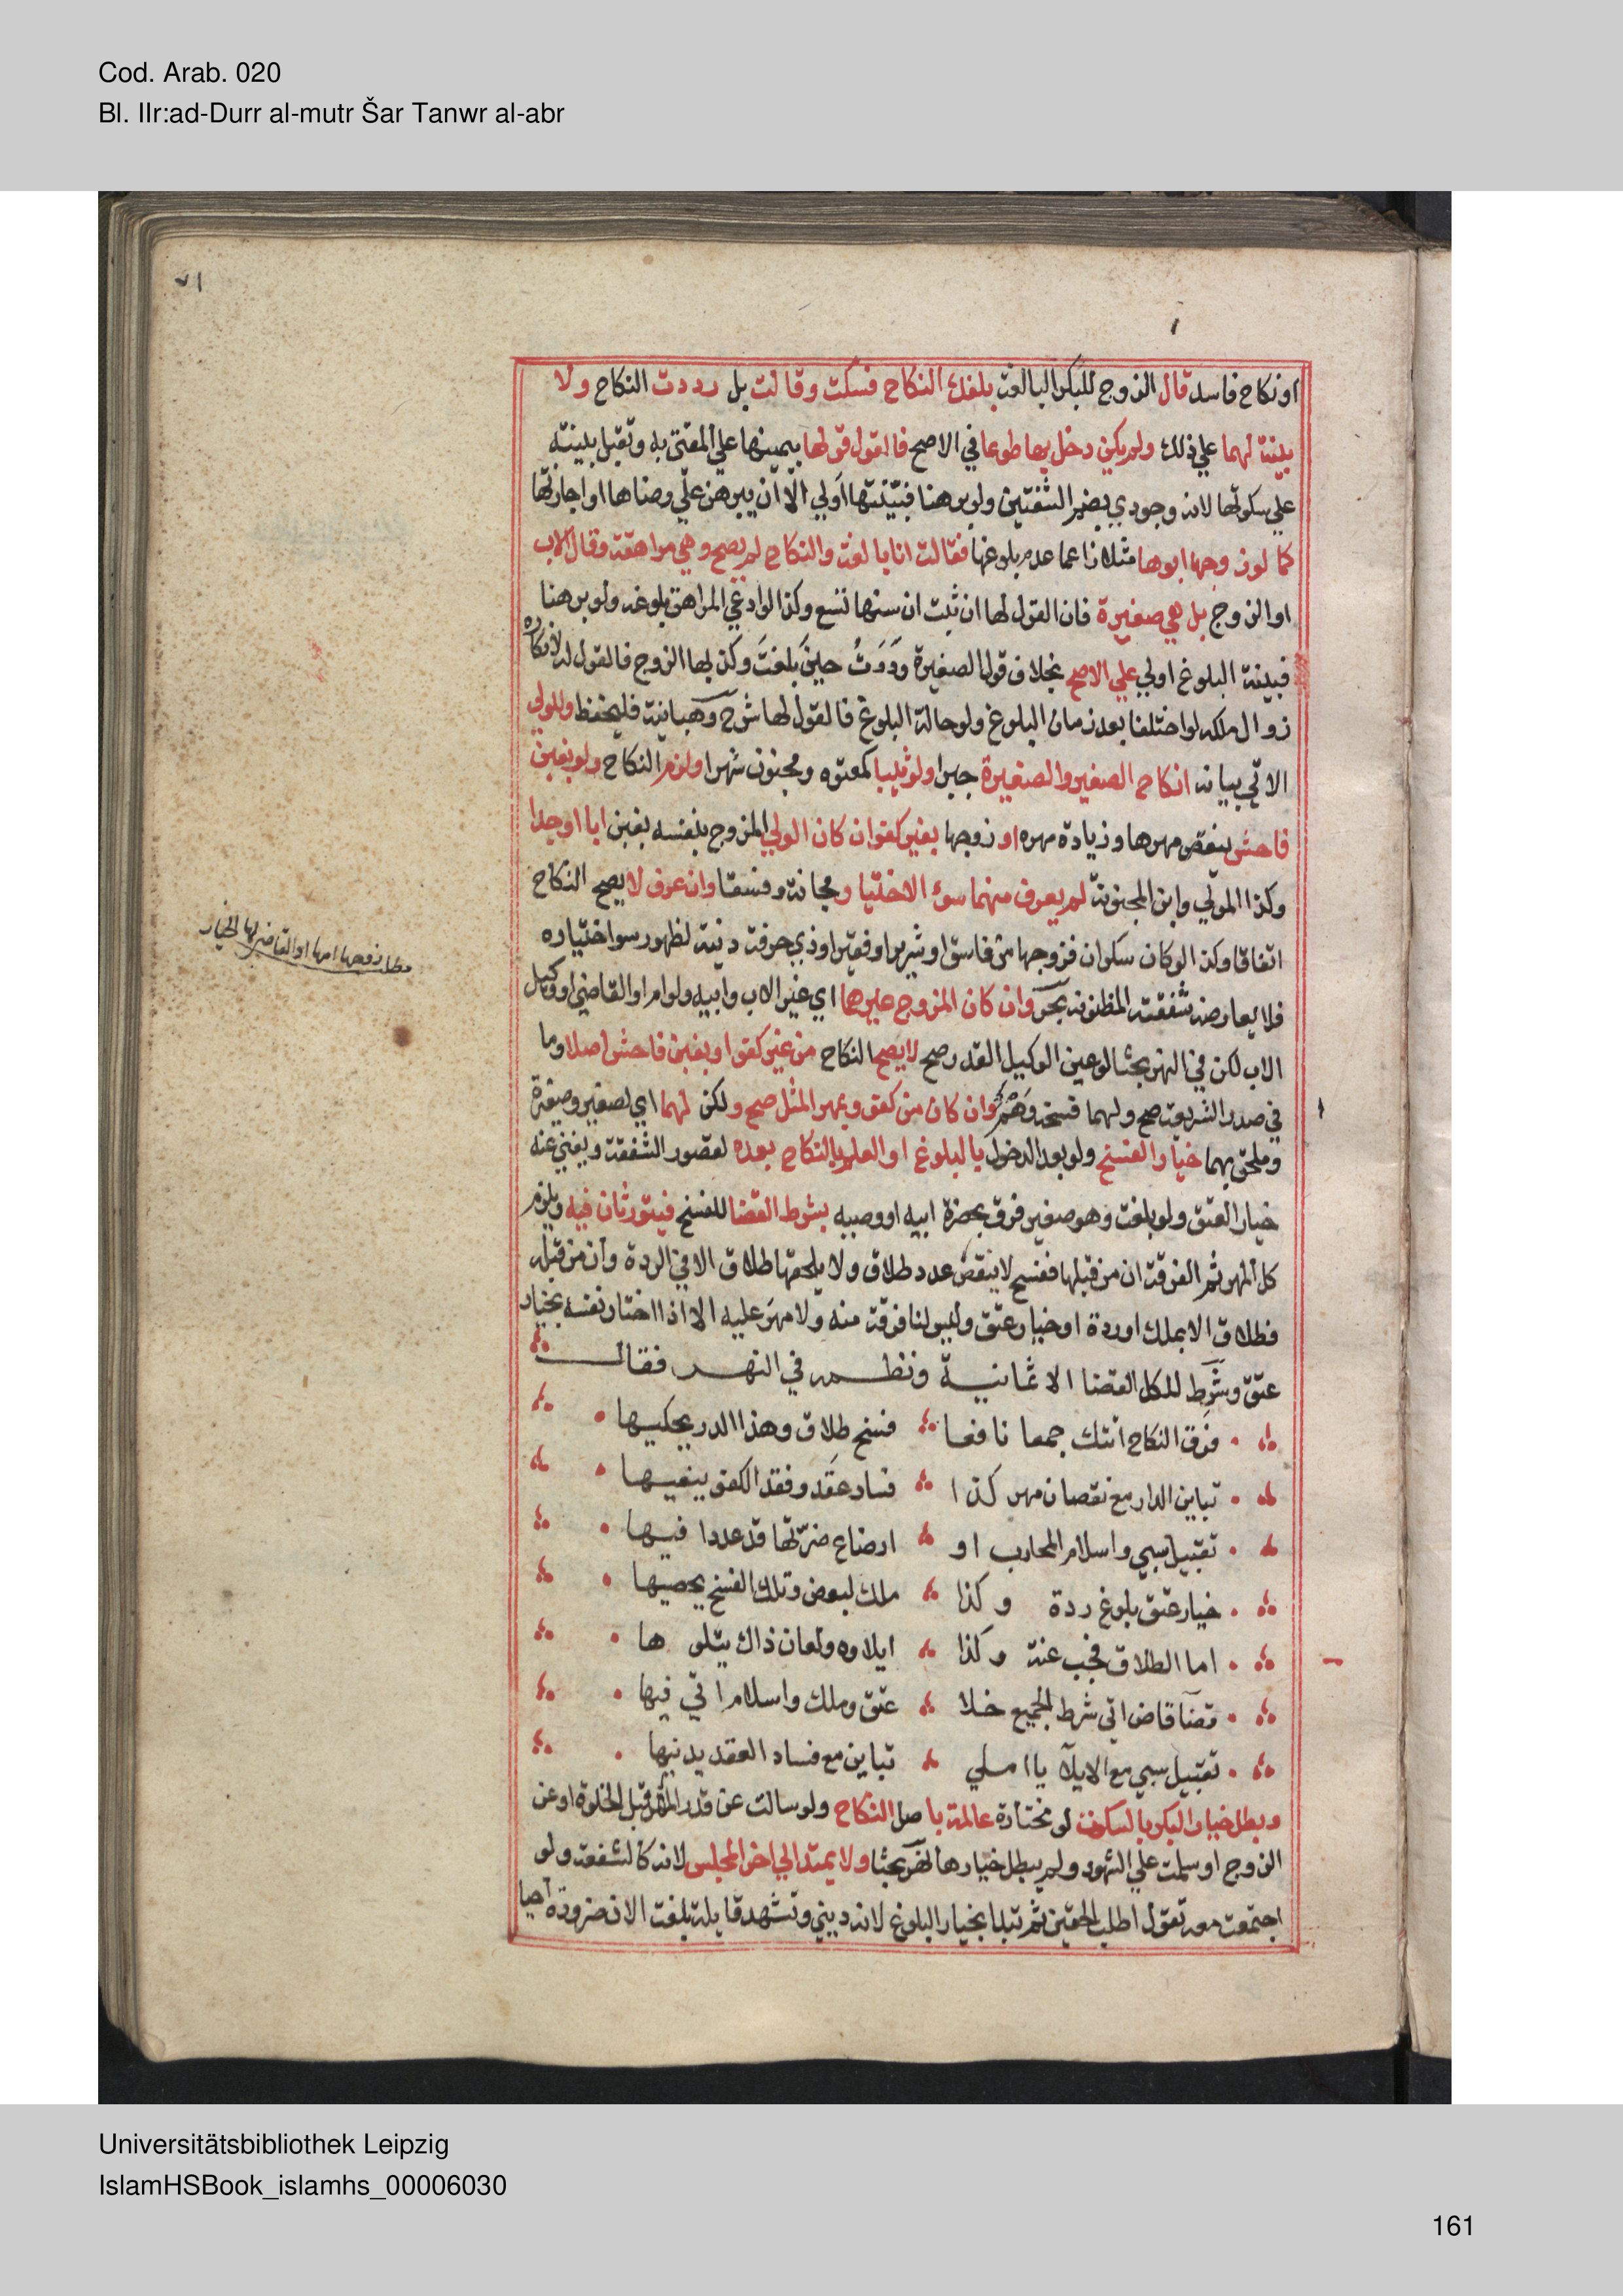 Cod. Arab. 020
Bl. IIr:ad-Durr al-mutr Šar Tanwr al-abr
٧١
او نكاح فاسد قال الزوج للبكر البالغة بلغك النكاح فسكت وقالت بل رددت النكاح ولا
بينة لهما علي ذلك ولم يكن دخل بها طوعا في الاصح فالقول قولها بيمينها علي المفتى به وتقبل بينته
علي سكوتها لانه وجودي بضم الشفتين ولو برهنا فبيّنتها اَولي الّا ان يبرهن علي رضاها او اجازتها
كما لو زوجها ابوها مثلا زاعما عدم بلوغها فقالت انا بالغة والنكاح لم يصح وهي مراهقة وقال الاب
او الزوج بل هي صغيرة فان القول لها ان ثبت ان سنها تسع وكذا لو ادعي المراهق بلوغه ولو برهنا
فبينة البلوغ اولي علي الاصح بخلاف قول الصغيرة رَدَدتُ حينَ بلغتُ وكذبها الزوج فالقول له لانكاره
زوال ملكه لو اختلفا بعد زمان البلوغ ولو حالة البلوغ فالقول لها شرح وهبانية فليحفظ وللولي
الاتي بيانه انكاح الصغير والصغيرة جبرا ولو ثيبا كمعتوه ومجنون شهرا ولزم النكاح ولو بغبن
فاحش بنقص مهرها وزيادة مهره او زوجها بغير كفو ان كان الولي المزوج بنفسه بغبن ابا او جدا
وكذا المولي وابن المجنونة لم يعرف منهما سوء الاختيار ومجانة وفسقا وان عرف لا يصح النكاح
اتفاقا وكذا لو كان سكران فزوجها من فاسق او شرير او فقير او ذي حرفة دنية لظهور سوا اختياره
فلا يعارضه شفقته المظنونة بحر وان كان المزوج غيرهما اي غير الاب وابيه ولو ام او القاضي او وكيل
الاب لكن في النهر بحثا لو عين الوكيل القدر صح لا يصح النكاح من غير كفو او بغبن فاحش اصلا وما
في صدر الشريعة صح ولهما فسخه وهم وان كان من كفو وبمهر المثل صح ولكن لهما اي لصغير وصغيرة
وملحق بهما خيار الفسخ ولو بعد الدخول بالبلوغ او العلم بالنكاح بعده لقصور الشفقة ويغني عنه
خيار العتق ولو بلغت وهو صغير فرق بحضرة ابيه او وصيه بشرط القضا للفسخ فيتورثان فيه ويلزم
كل المهر ثم الفرقة ان من قبلها ففسخ لا ينقص عدد طلاق ولا يلحقها طلاق الا في الردة وان من قبله
فطلاق الا بملك او ردة او خيار عتق وليس لنا فرقة منه ولا مهر عليه الا اذا اختار نفسه بخيار
عتق وشرط للكل القضا الا ثمانية ونظمه في النهر فقال
فرق النكاح اتتك جمعا نافعا فسخ طلاق وهذا الدر يحكيها
تباين الدار مع نقصان مهر كذا فساد عقد وفقد الكفو ينعيها
تقبيل سبي واسلام المحارب او ارضاع ضرّتها قد عددا فيها
خيار عتق بلوغ ردة وكذا ملك لبعض وتلك الفسخ يحصيها
اما الطلاق فجب عنة وكذا ايلاوه ولعان ذاك يتلوها
قضا قاض اتي شرط الجميع خلا عتق وملك واسلام اتي فيها
تقبيل سبي مع الايلا يا املي تباين مع فساد العقد يدنيها
وبطل خيار البكر بالسكوت لو مختارة عالمة باصل النكاح ولو سالت عن قدر المهر قبل الخلوة او عن
الزوج او سلمت علي الشهود ولم يبطل خيارها نهر بحثا ولا يمتد الي اخر المجلس لانه كالشفعة ولو
اجتمعت معه تقول اطلب الحقين ثم تبدا بخيار البلوغ لانه ديني وتشهد قايلة بلغت الان ضرورة احيا
Universitätsbibliothek Leipzig
IslamHSBook_islamhs_00006030
161